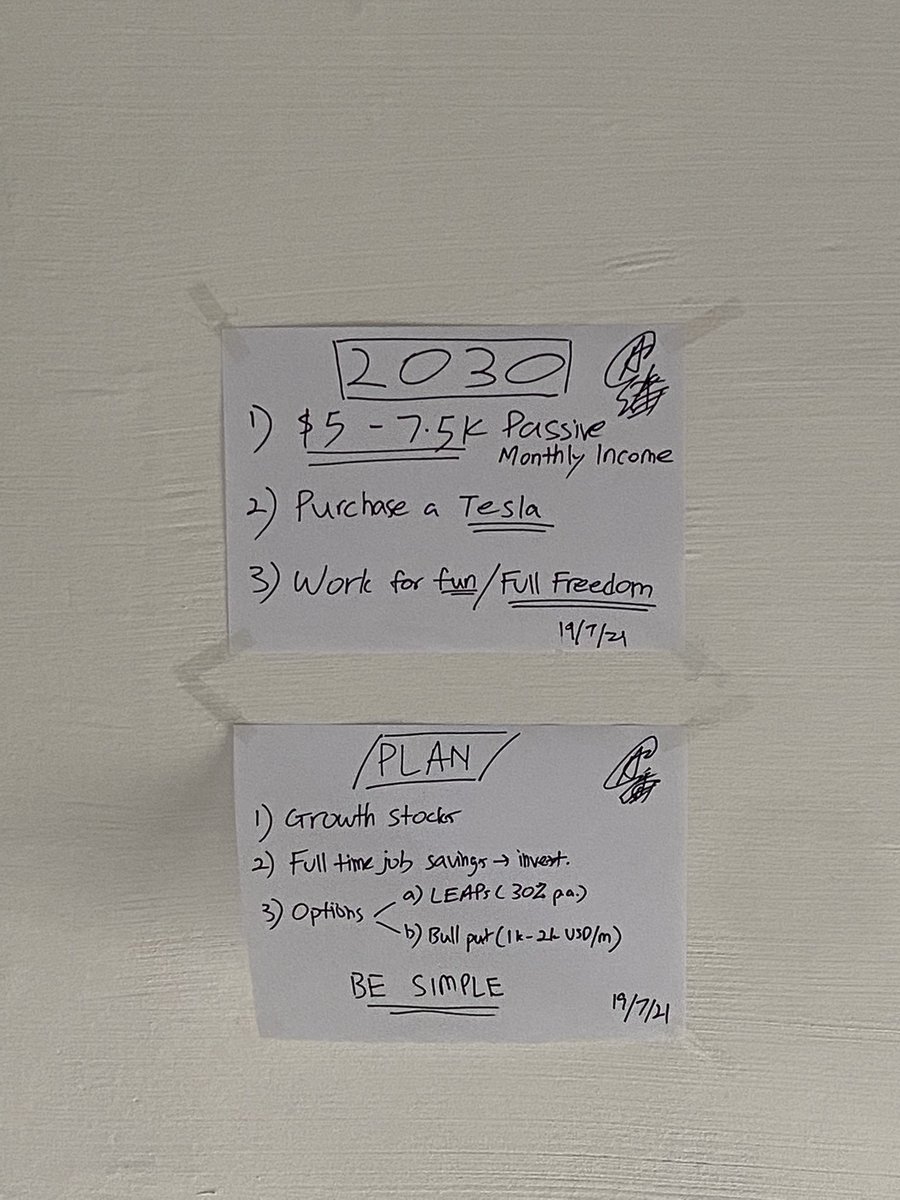 2030
1) $5 - 7.5k Passive
Monthly Income
2) Purchase a Tesla
3) Work for fun/Full Freedom
19/7/21
PLAN
1) Growth Stocks
2) Full time job savings → invest.
3) Options
a) LEAPs (30% p.a.)
b) Bull put (1k-2k USD/m)
BE SIMPLE
19/7/21